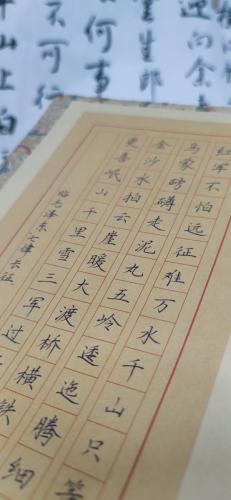 迎向余
生郎
何事
不可行
山上白
红军不怕远征难万水千山只等
乌蒙磅礴走泥丸五岭逶迤腾细
金沙水拍云崖暖大渡桥横铁
更喜岷山千里雪三军过
临毛泽东七律长征